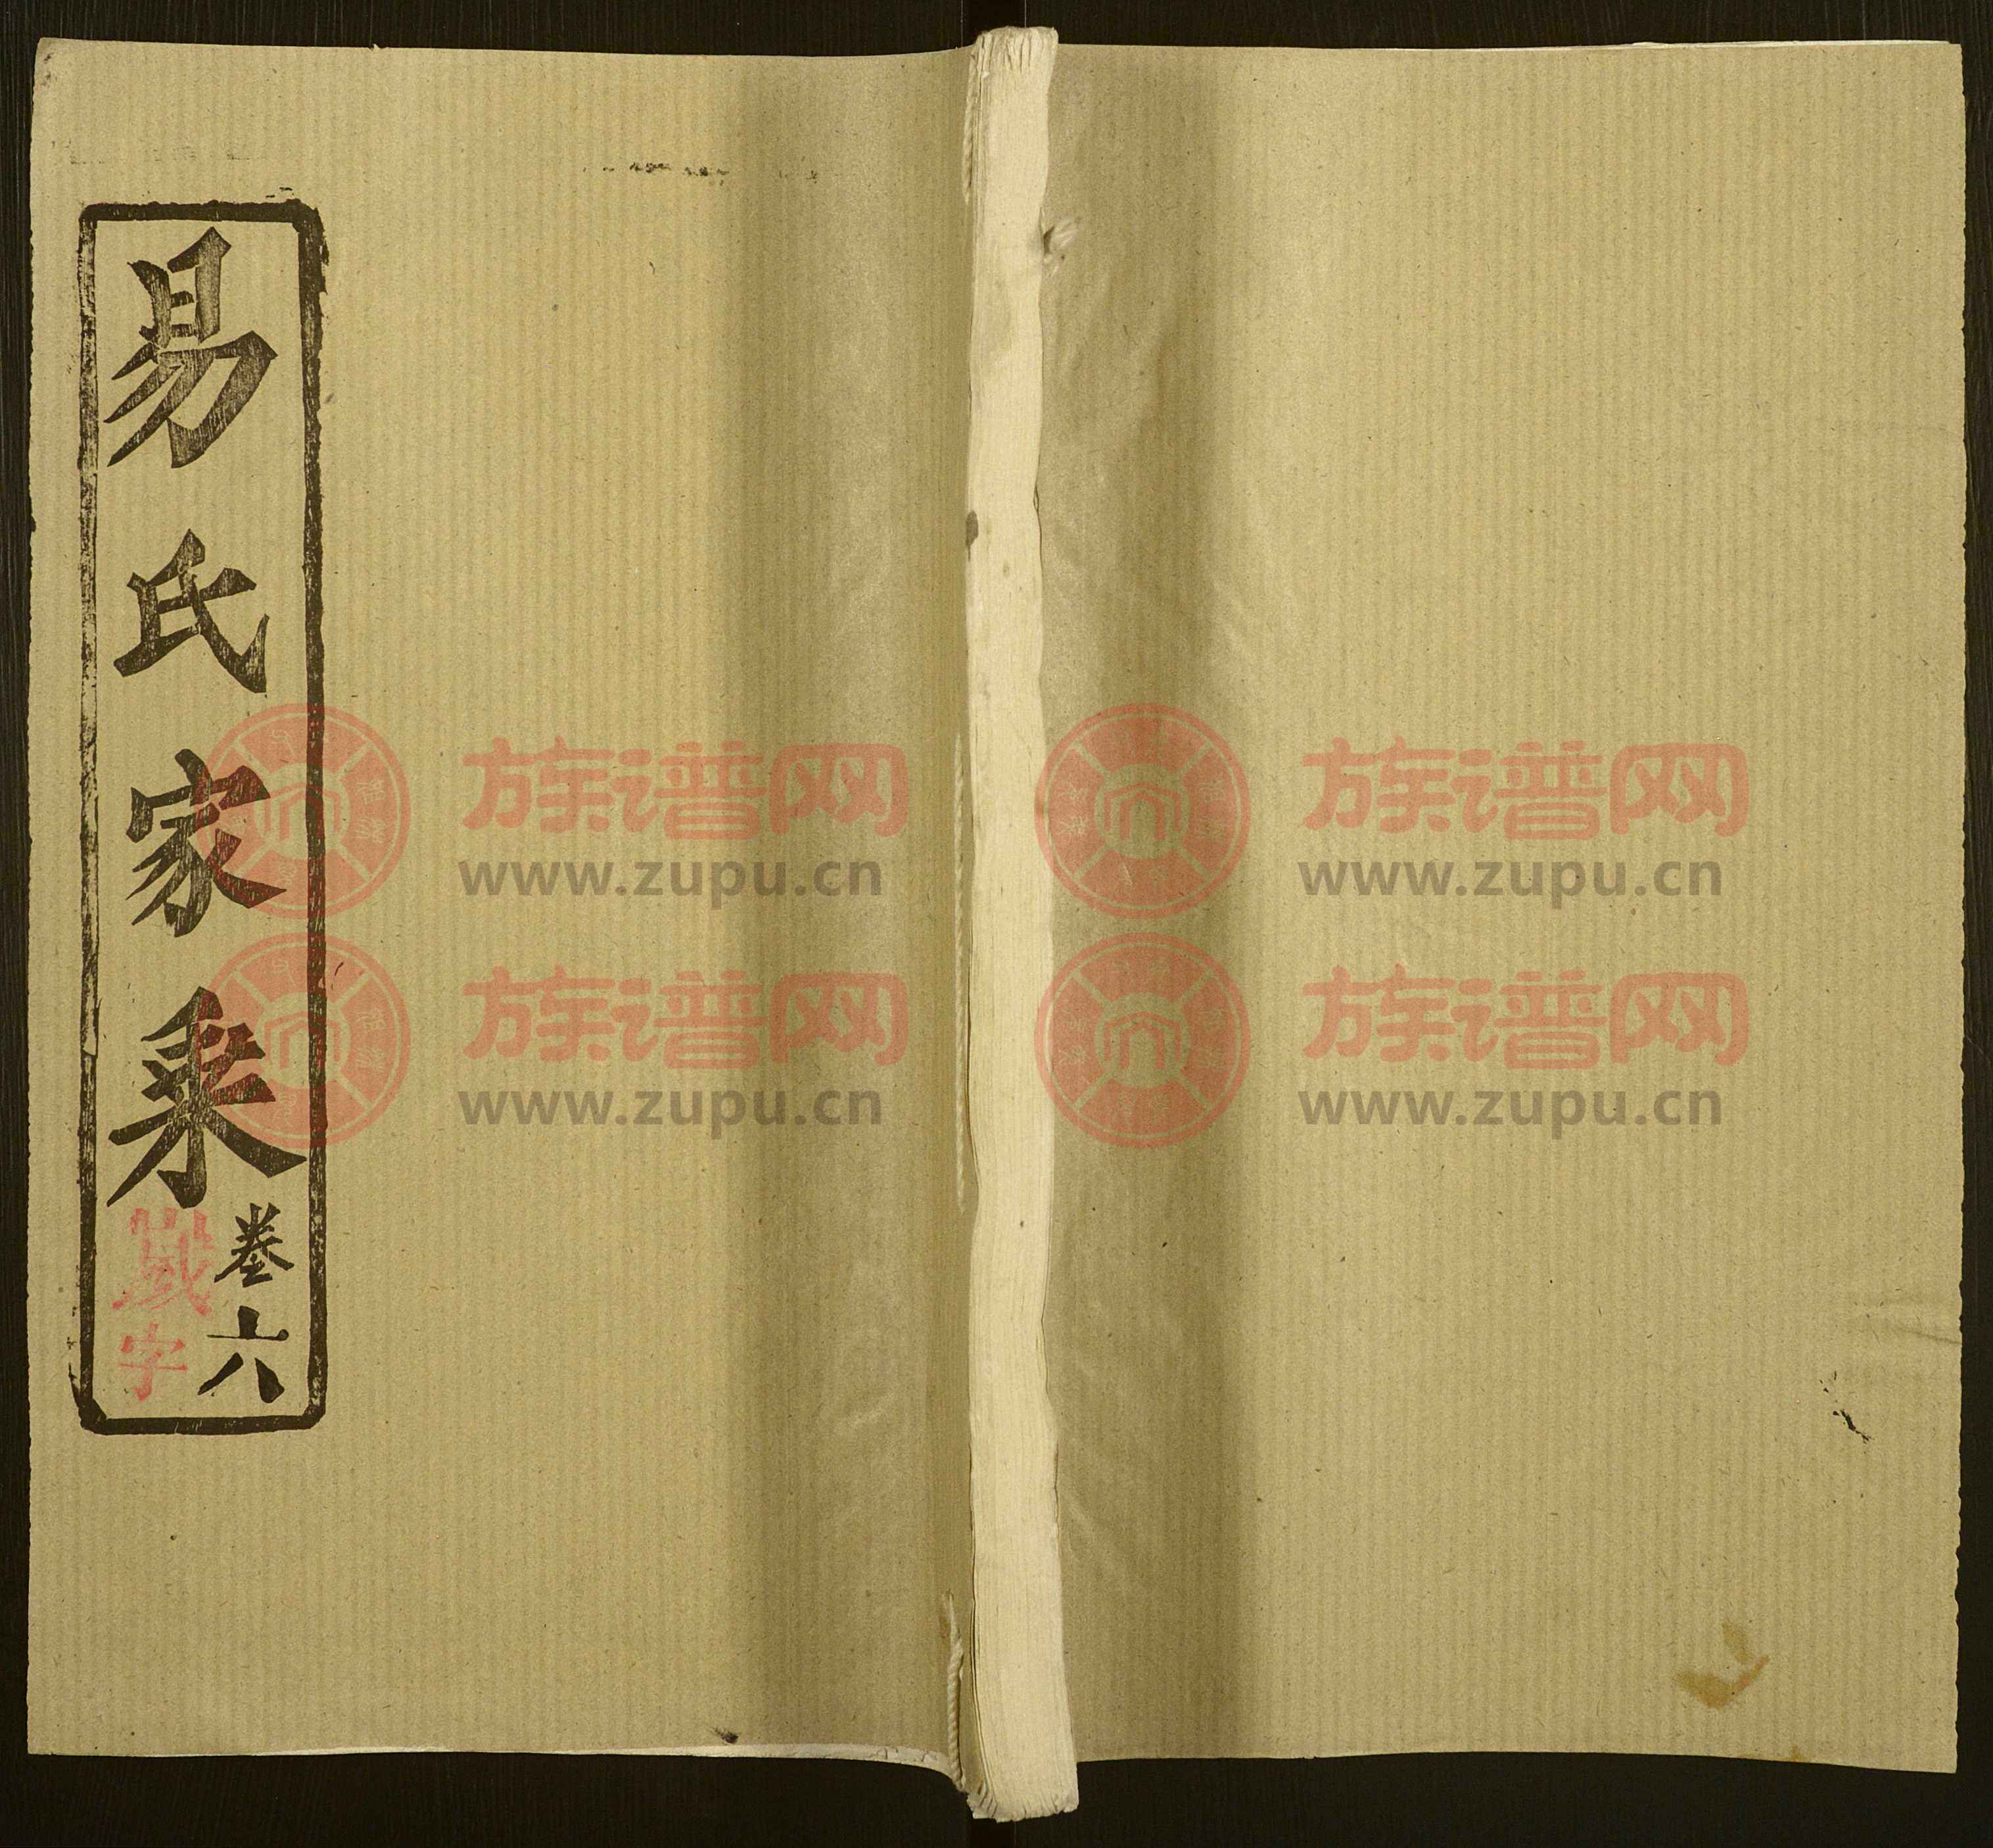 易氏家乘
卷六
嵗字
族谱网
www.zupu.cn
族谱网
www.zupu.cn
族谱网
www.zupu.cn
族谱网
www.zupu.cn